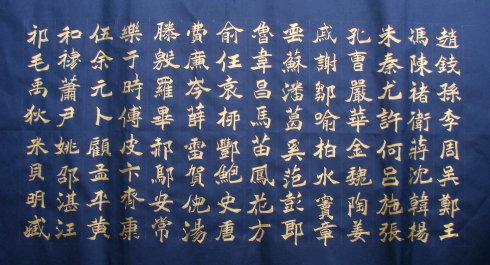 趙錢孫李周吳鄭王
馮陳褚衛蔣沈韓楊
朱秦尤許何呂施張
孔曹嚴華金魏陶姜
戚謝鄒喻柏水竇章
雲蘇潘葛奚范彭郎
魯韋昌馬苗鳳花方
俞任袁柳酆鮑史唐
費廉岑薛雷賀倪湯
滕殷羅畢郝鄔安常
樂于時傅皮卞齊康
伍余元卜顧孟平黃
和穆蕭尹姚邵湛汪
祁毛禹狄米貝明臧